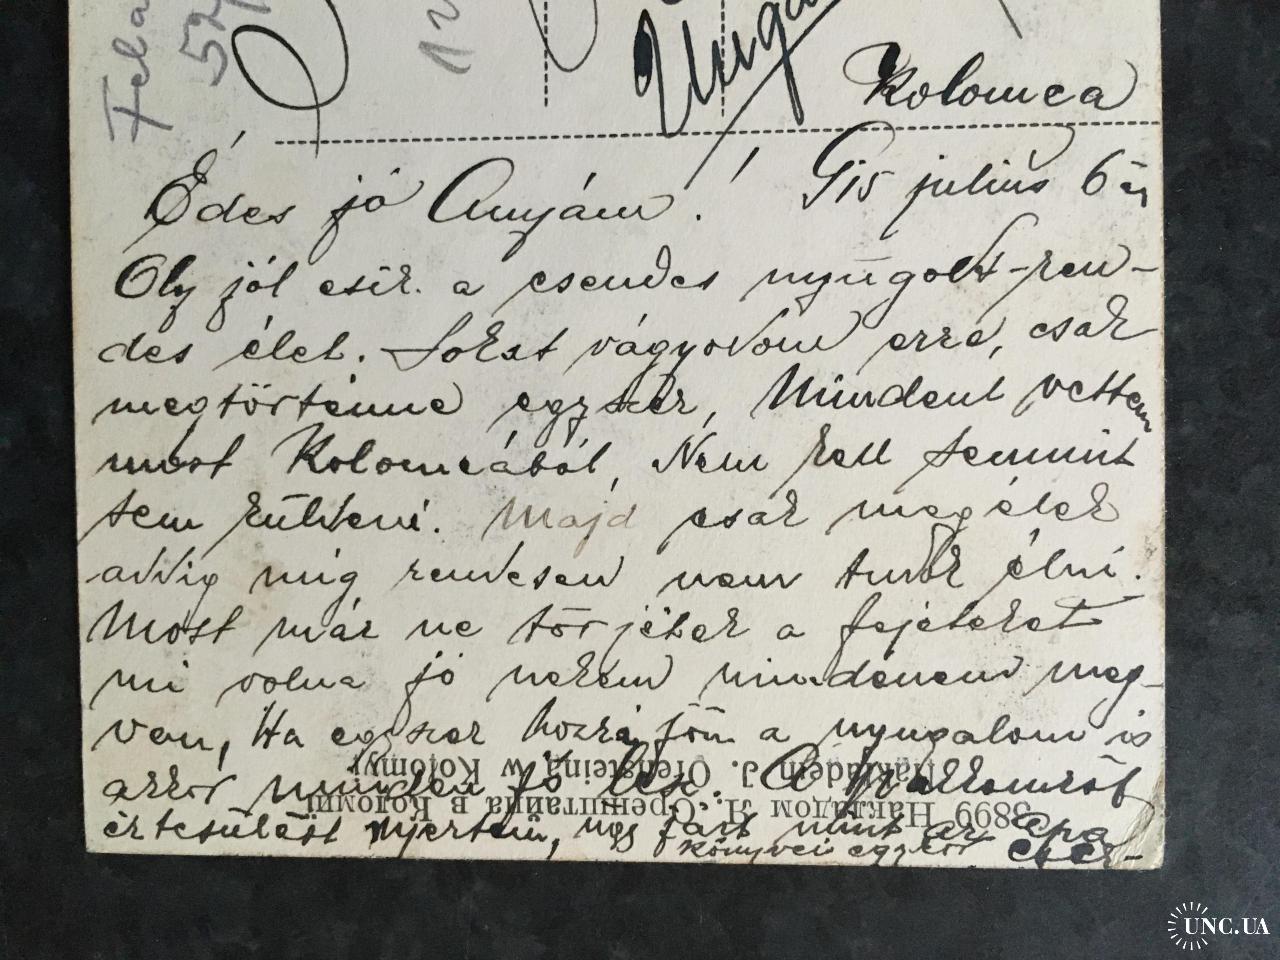 Ungarn
Kolomea
Édes jó Anyám! 915 július 6 án
Oly jól esik a csendes nyugodt-ren-
des élet. Sokat vágyodom erre, csak
megtörténne egyszer, Mindent vettem
most Kolomeából, Nem kell semmit
sem küldeni. Majd csak megélek
addig míg rendesen nem tudok élni.
Most már ne törjétek a fejeteket
mi volna jó nekem mindenem meg-
van, Ha egyszer hozzá jön a nyugalom is
akkor minden jó lesz. A
értesülést nyertem, úgy járt mint az Apa
könyvei egykor
3899 Накладом Я. Оренштайна в Коломиї
Nakładem J. Orensteina w Kołomyi
UNC.UA